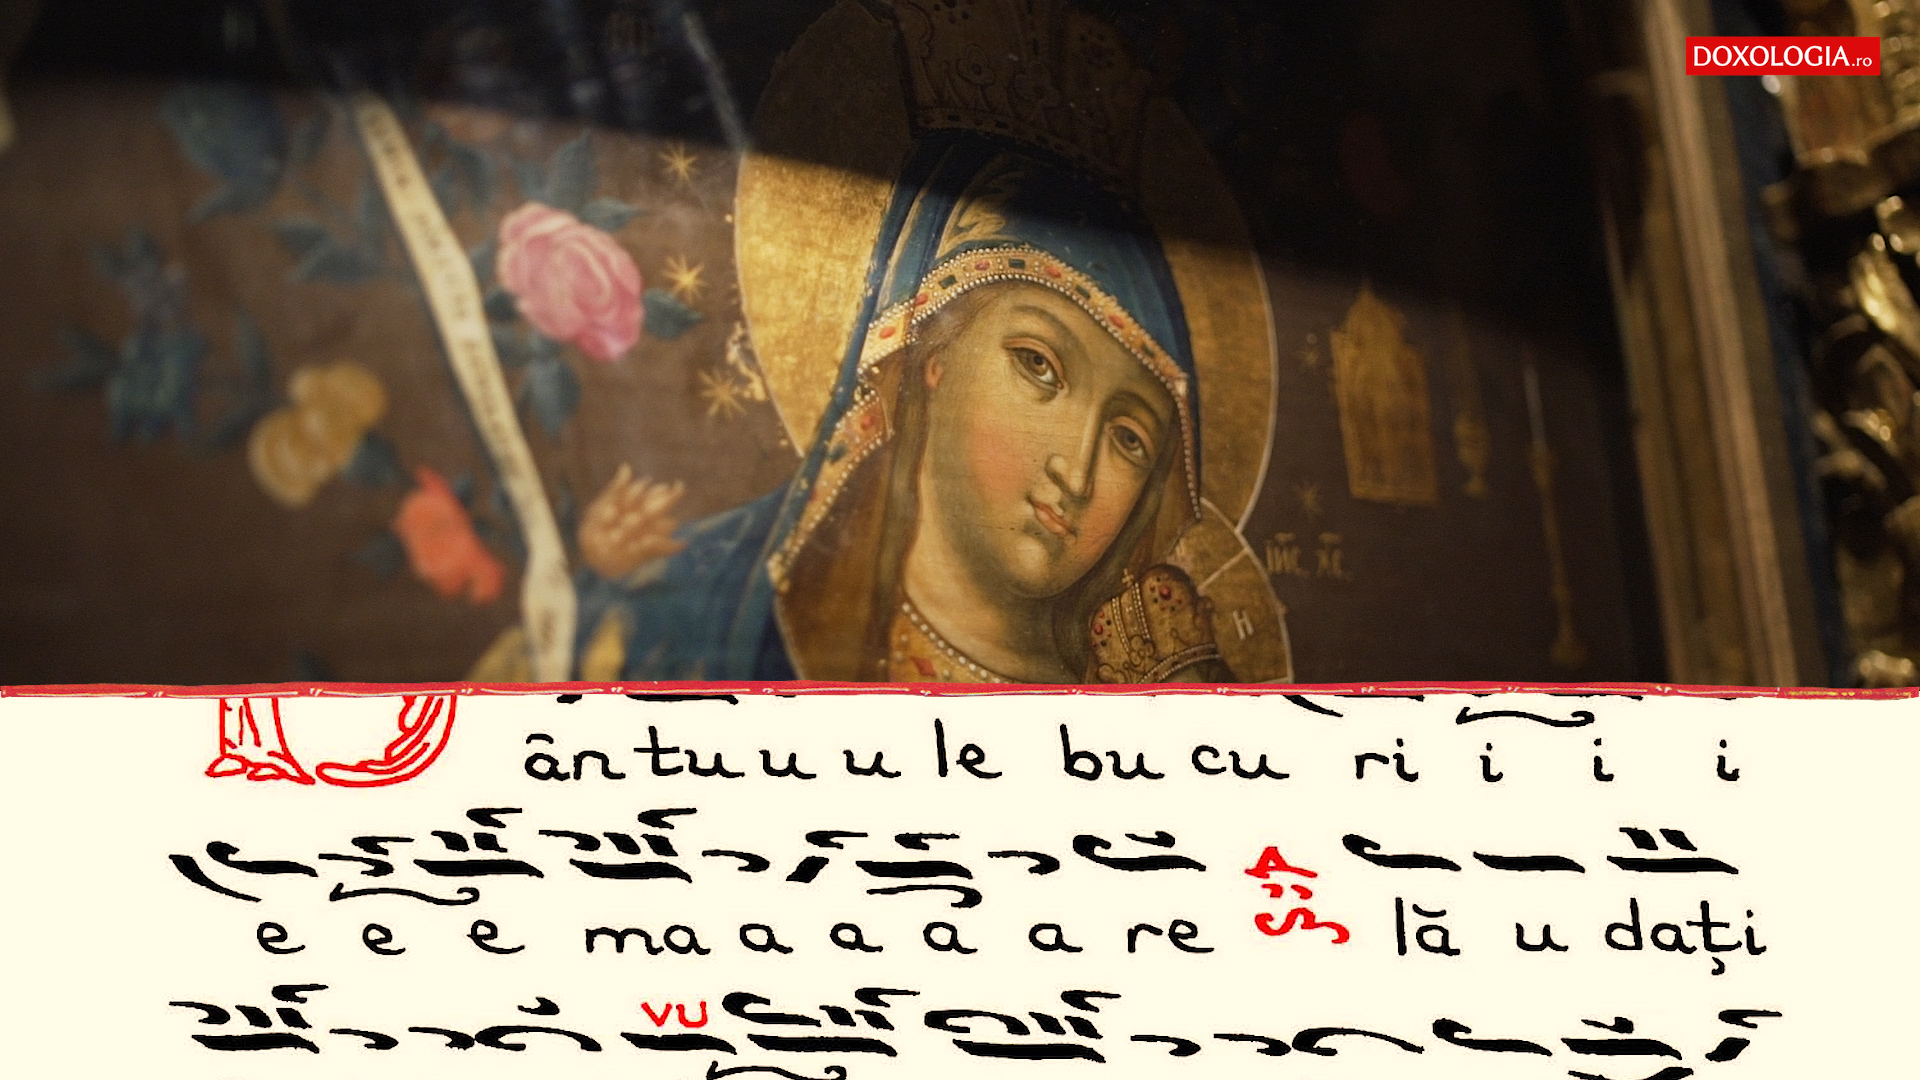 DOXOLOGIA.ro
H
ântu u u le bu cu ri i i i
e e e ma a a a a re lă u dați
vu